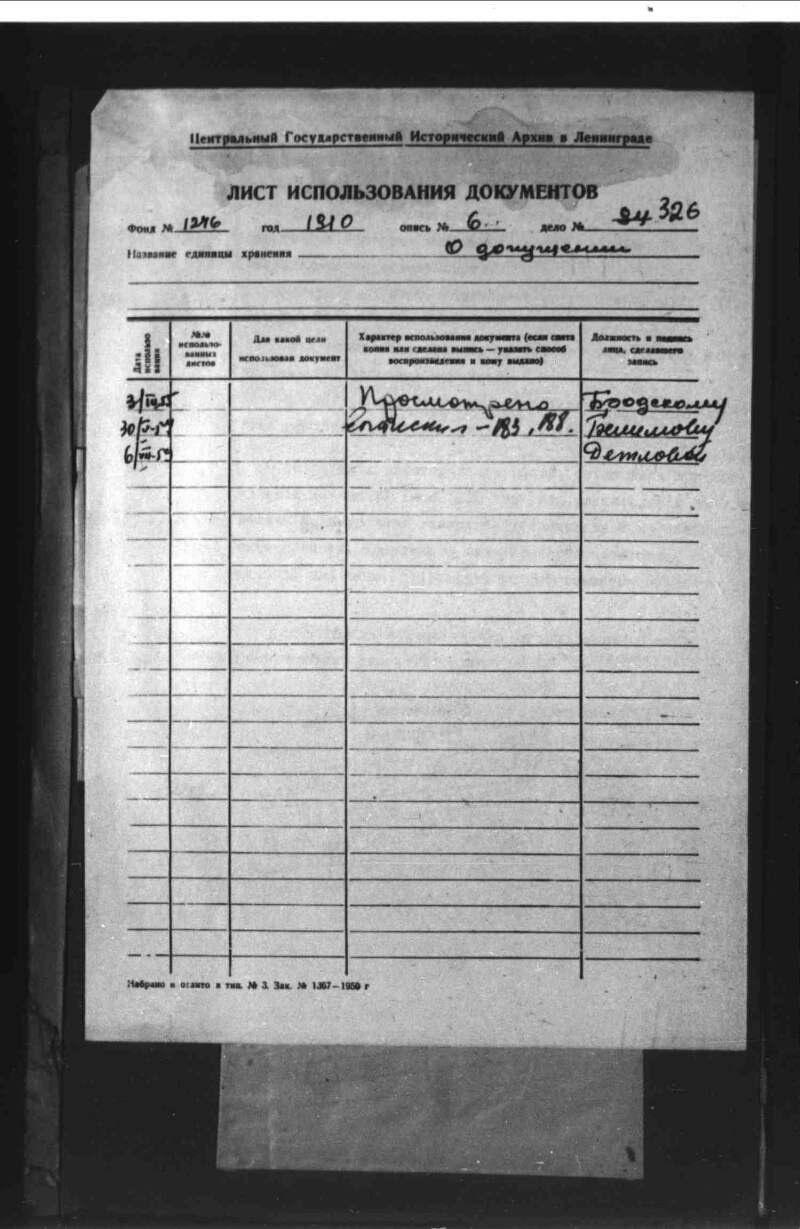 Центральный Государственный Исторический Архив в Ленинграде
ЛИСТ ИСПОЛЬЗОВАНИЯ ДОКУМЕНТОВ
Фонд № 1276 год 1910 опись № 6 дело № 326
Название единицы хранения О допущении
Дата использования
№№ использованных листов
Для какой цели использован документ
Характер использования документа (если снята копия или сделана выпись — указать способ воспроизведения и кому выдано)
Должность и подпись лица, сделавшего запись
3/III 55 Просмотрено Бродскому
30/V-59 183, 188.
6/VII-59 Детловой
Набрано и отлито в тип. № 3. Зак. № 1367—1950 г